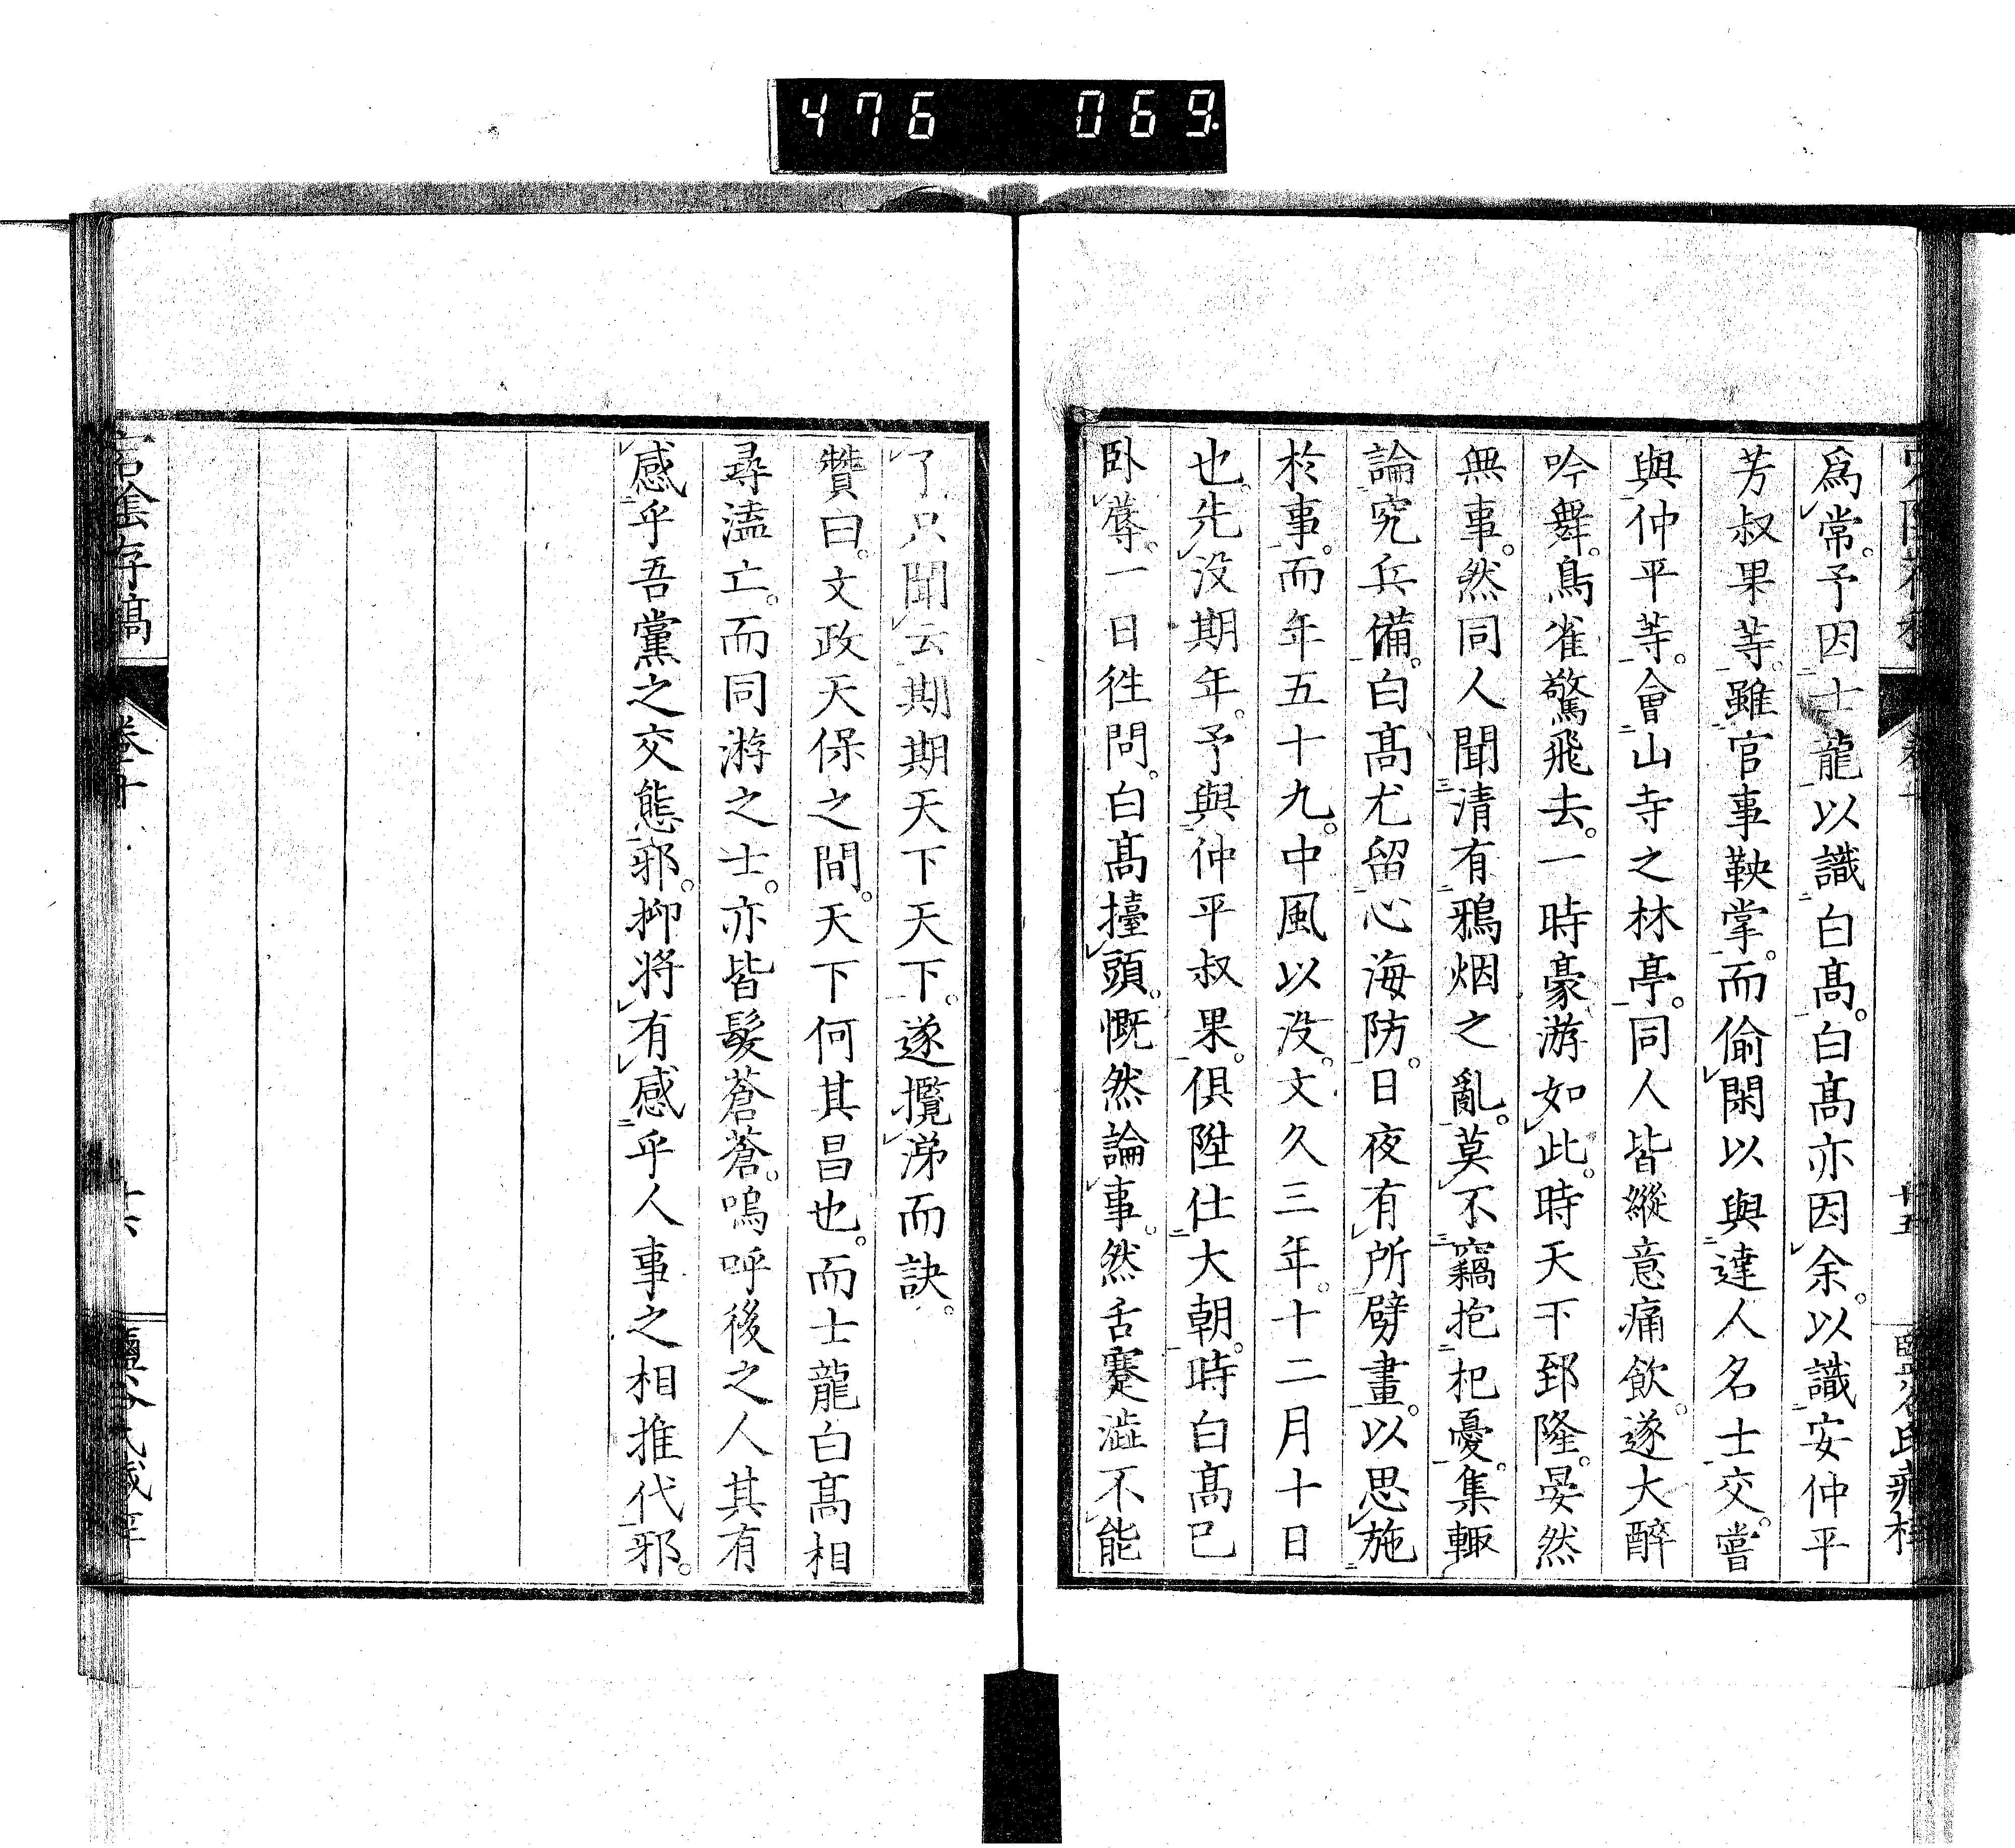 476 069
爲常。予因士龍以識白髙。白髙亦因余。以識安仲平
芳叔果等。雖官事鞅掌。而偷閑以與達人名士交。嘗
與仲平等。會山寺之林亭。同人皆縱意痛飲。遂大醉
吟舞。鳥雀驚飛去。一時豪游如此。時天下郅隆。晏然
無事。然同人聞清有鴉烟之亂。莫不竊抱杞憂。集輙
論究兵備。白髙尤留心海防。日夜有所劈畫。以思施
於事。而年五十九。中風以没。文久三年。十二月十日
也。先没期年。予與仲平叔果。俱陞仕大朝。時白髙已
卧蓐。一日徃問。白髙擡頭。慨然論事。然舌蹇澁不能
了只聞云期期天下天下。遂攬涕而訣。
贊曰。文政天保之間。天下何其昌也。而士龍白髙相
尋溘亡。而同游之士。亦皆髮蒼蒼。嗚呼後之人其有
感乎吾黨之交態邪。抑将有感乎人事之相推代邪。
宕陰存稿
卷十
十六